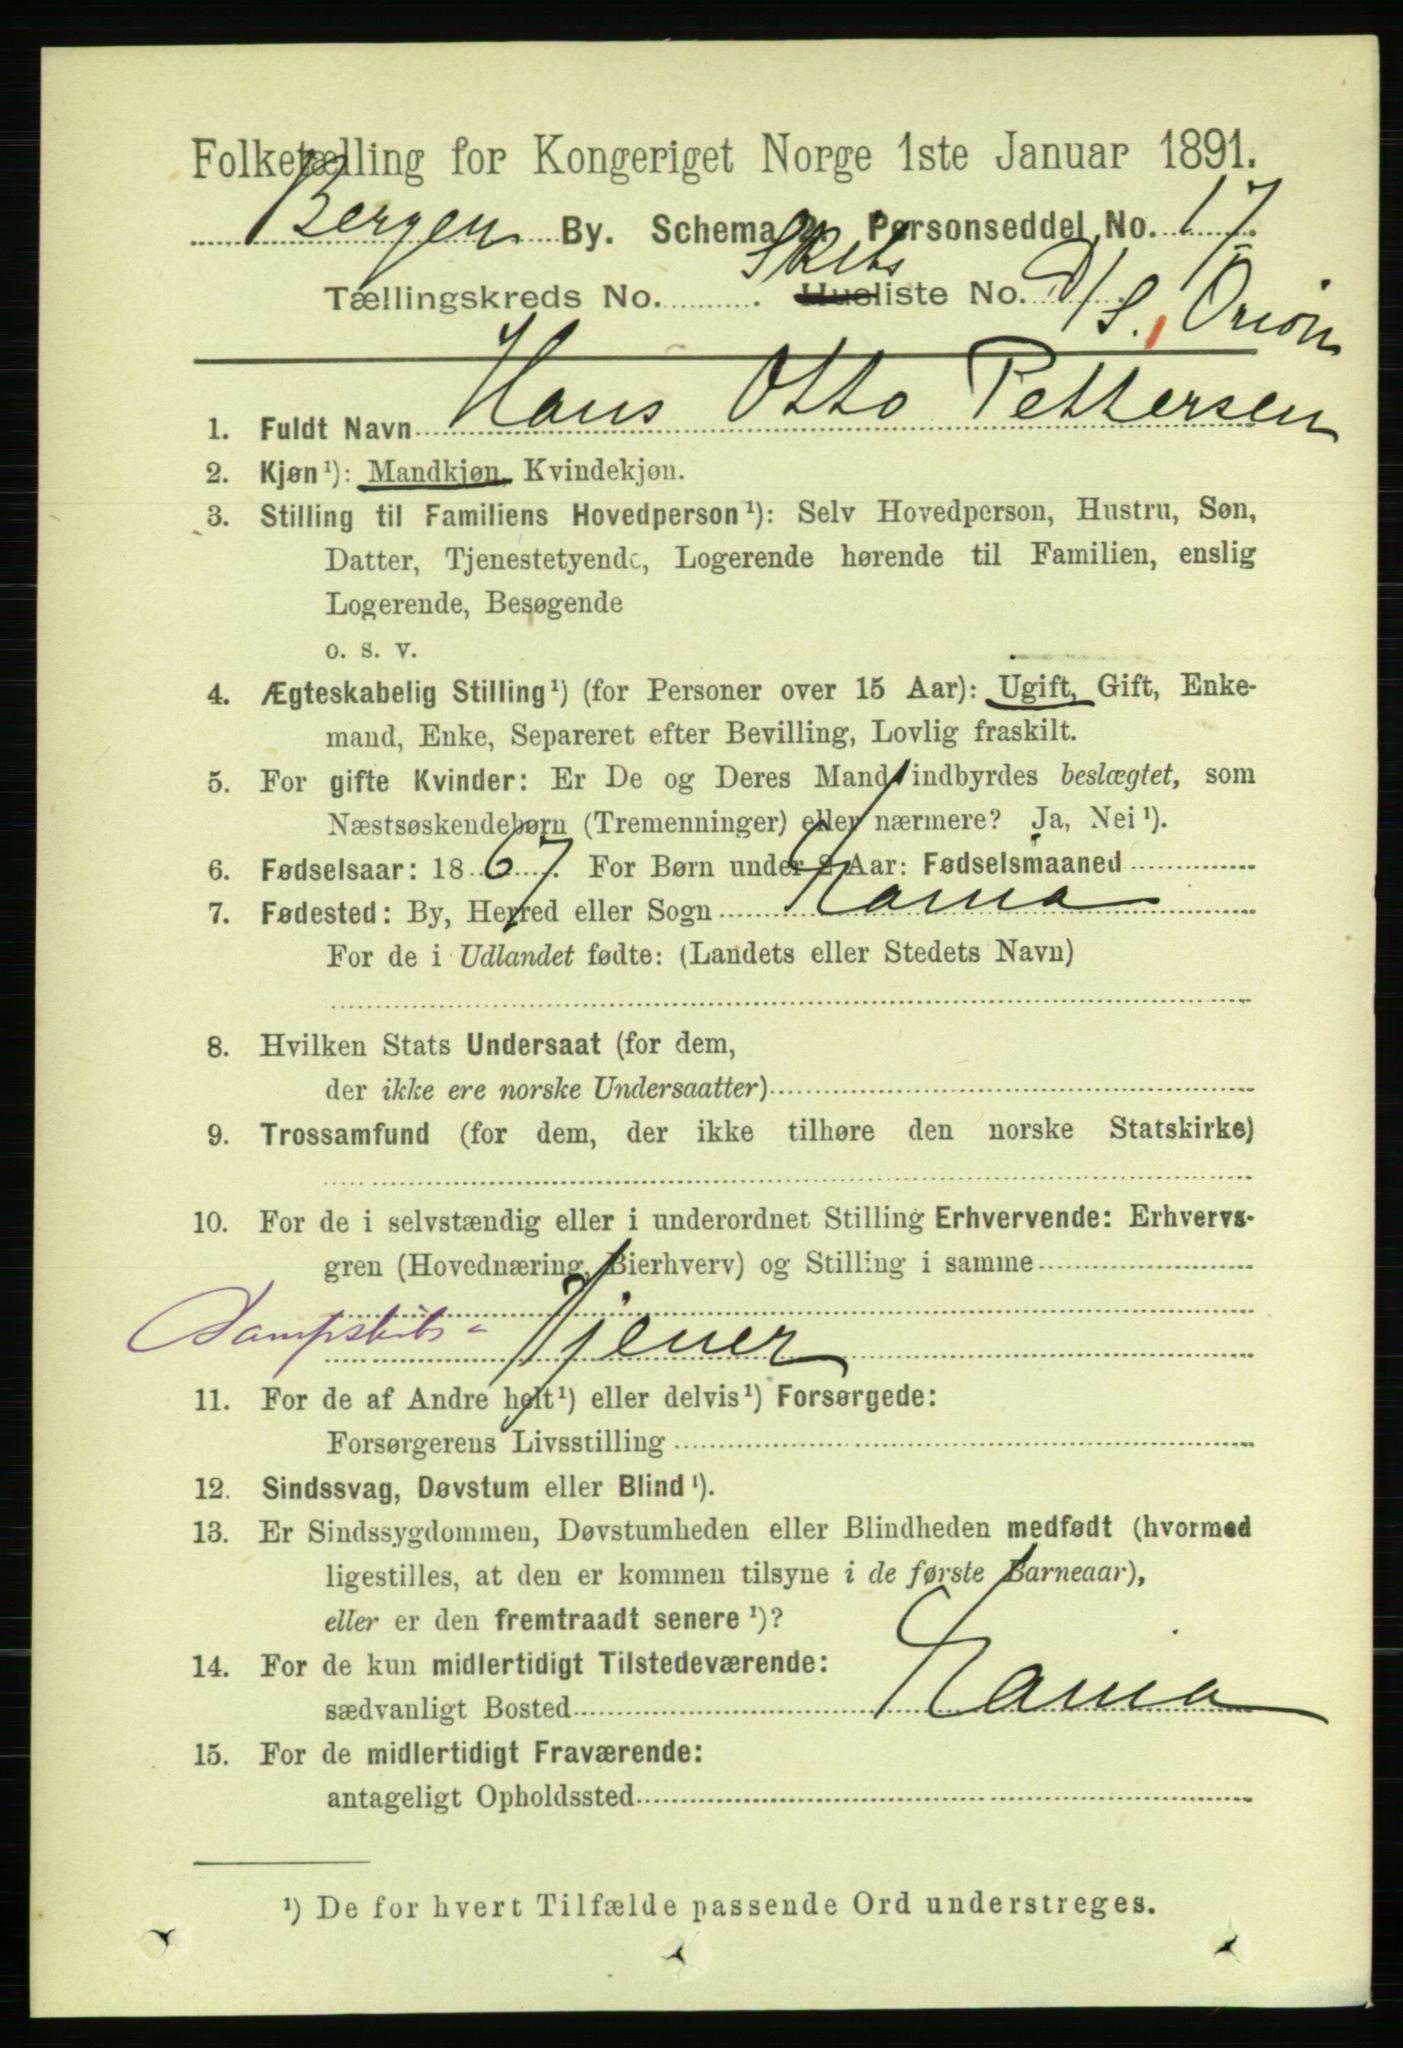 Folketælling for Kongeriget Norge 1ste Januar 1891.
Bergen By. Schema 2. Personseddel No. 17
Tællingskreds No. ........ Skibs Husliste No. D/S. Orion
1. Fuldt Navn Hans Otto Pettersen
2. Kjøn¹): Mandkjøn, Kvindekjøn.
3. Stilling til Familiens Hovedperson¹): Selv Hovedperson, Hustru, Søn,
Datter, Tjenestetyende, Logerende hørende til Familien, enslig
Logerende, Besøgende
o. s. v.
4. Ægteskabelig Stilling¹) (for Personer over 15 Aar): Ugift, Gift, Enke-
mand, Enke, Separeret efter Bevilling, Lovlig fraskilt.
5. For gifte Kvinder: Er De og Deres Mand indbyrdes beslægtet, som
Næstsøskendebørn (Tremenninger) eller nærmere? Ja, Nei¹).
6. Fødselsaar: 1867. For Børn under 2 Aar: Fødselsmaaned
7. Fødested: By, Herred eller Sogn
For de i Udlandet fødte: (Landets eller Stedets Navn)
8. Hvilken Stats Undersaat (for dem,
der ikke ere norske Undersaatter)
9. Trossamfund (for dem, der ikke tilhøre den norske Statskirke)
10. For de i selvstændig eller i underordnet Stilling Erhvervende: Erhvervs-
gren (Hovednæring, Bierhverv) og Stilling i samme
Dampskibs- Tjener
11. For de af Andre helt¹) eller delvis¹) Forsørgede:
Forsørgerens Livsstilling
12. Sindssvag, Døvstum eller Blind¹).
13. Er Sindssygdommen, Døvstumheden eller Blindheden medfødt (hvormed
ligestilles, at den er kommen tilsyne i de første Barneaar),
eller er den fremtraadt senere¹)?
14. For de kun midlertidigt Tilstedeværende:
sædvanligt Bosted
15. For de midlertidigt Fraværende:
antageligt Opholdssted
¹) De for hvert Tilfælde passende Ord understreges.